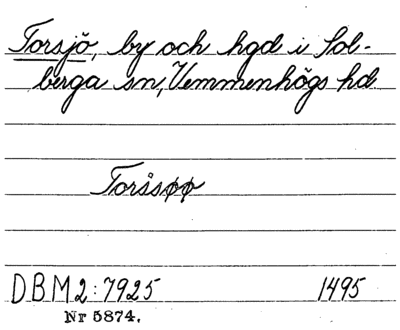 Torsjö, by och hgd i Sol-
berga sn, Vemmenhögs hd
Torsåsøø
DBM2:7925 1495
Nr 5874.